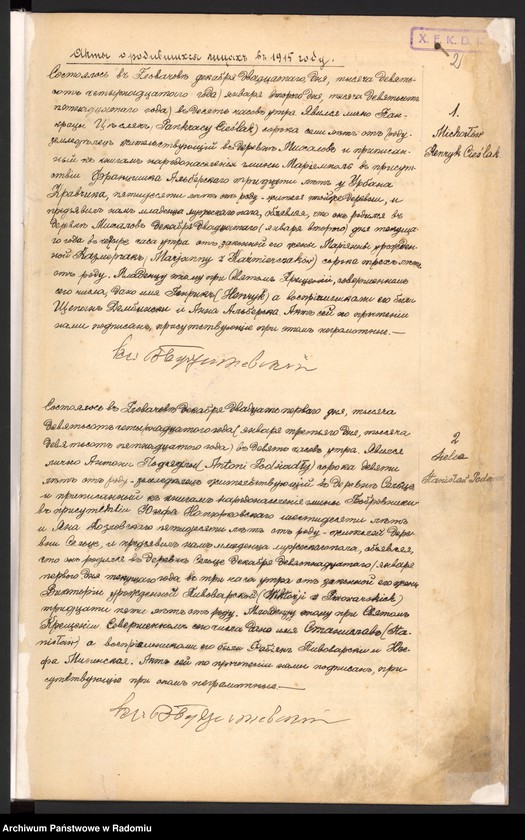 X. F. K. D. I.
2
Акты о родившихся лицах въ 1915 году.
1.
Michałów
Henryk Cieślak
Состоялось въ декабря двадцатаго дня, тысяча девять-
сотъ четырнадцатаго года (января второго дня, тысяча девятьсотъ
пятнадцатаго года) въ десять часовъ утра. Явился лично Пан-
краций Цесляк (Pankracy Cieślak) сорока семи лѣтъ отъ роду,
земледѣлецъ жительствующий въ деревнѣ Михаловъ и приписан-
ный къ книгамъ народонаселения гмины Мариамполь въ присут-
ствии Франциска Альберского тридцати лѣтъ и Урбана
Кравчика, пятидесяти лѣтъ отъ роду - жителей той же деревни, и
предъявилъ намъ младенца мужескаго пола, объявляя, что онъ родился въ
деревнѣ Михаловъ декабря двадцатаго (января второго) дня текуща-
го года въ четыре часа утра отъ законной его жены Марианны урожден-
ной Казмерчакъ, (Marjanny z Kaźmierczaków) сорока трехъ лѣтъ
отъ роду. Младенцу этому при Святомъ Крещении, совершенномъ
сего числа, дано имя Генрикъ (Henryk) а восприемниками его были
Щепанъ и Анна Альберска. Актъ сей по прочтении
нами подписанъ, присутствующие при этомъ неграмотные.—
2
Sielce
Stanisław
Состоялось въ декабря двадцать перваго дня, тысяча
девятьсотъ четырнадцатаго года (января третьяго дня, тысяча
девятьсотъ пятнадцатаго года) въ часовъ утра. Явился
лично Антони (Antoni) сорока девяти
лѣтъ отъ роду - земледѣлецъ жительствующий въ деревнѣ Сельце
и приписанный къ книгамъ народонаселения гмины Бобровники
въ присутствии Юзефа шестидесяти лѣтъ
и Яна Козловского пятидесяти лѣтъ отъ роду - жителей дере-
вни Сельце, и предъявилъ намъ младенца мужескаго пола, объявляя,
что онъ родился въ деревнѣ Сельце декабря девятнадцатаго (января
перваго) дня текущаго года въ три часа утра отъ законной его жены
Виктории урожденной Пивоварской (Wiktorji z Piwowarskich)
тридцати пяти лѣтъ отъ роду. Младенцу этому при Святомъ
Крещении совершенномъ сего числа дано имя Станиславъ (Sta-
nisław) а восприемниками его были Фабиянъ Пивоварски и Юзе-
фа. Актъ сей по прочтении нами подписанъ, при-
сутствующие при этомъ неграмотные.—
Archiwum Państwowe w Radomiu